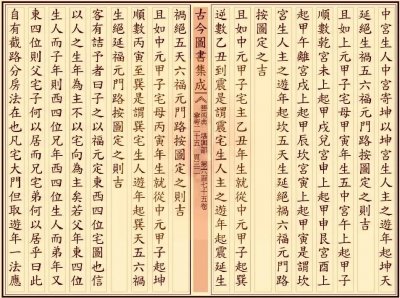 中宮生人中宮寄坤以坤宮生人主之遊年起坤天
延絕生禍五六福元門路按圖定之則吉
且如中元甲子宅母丙寅年生五中宮午上起甲子
順數乾宮未上起甲戌兌宮申上起甲申艮宮酉上
起甲午離宮戌上起甲辰坎宮亥上起甲寅是謂坎
宮生人主之遊年起坎五天生延絕禍六福元門路
按圖定之吉
且如中元甲子宅主乙丑年生就從中元甲子起巽
逆數乙丑到震是謂震宮生人主之遊年起震延生
古今圖書集成
藝術典
第六百七十五卷
堪輿部
禍絕五天六福元門路按圖定之則吉
且如中元甲子宅母丙寅年生就從中元甲子起坤
順數丙寅至巽是謂巽宮生人遊年起巽天五六禍
生絕延福元門路按圖定之則吉
客有詰予者曰子之以福元定東西四位宅圖也信
以人之生年為主不以宅向為主矣若父年東四位
生人而子年則西四位兄年西四位生人而弟年又
東四位則父宅子何以居而兄宅弟何以居乎曰此
自有截路分房法在也凡宅大門但取遊年一法應